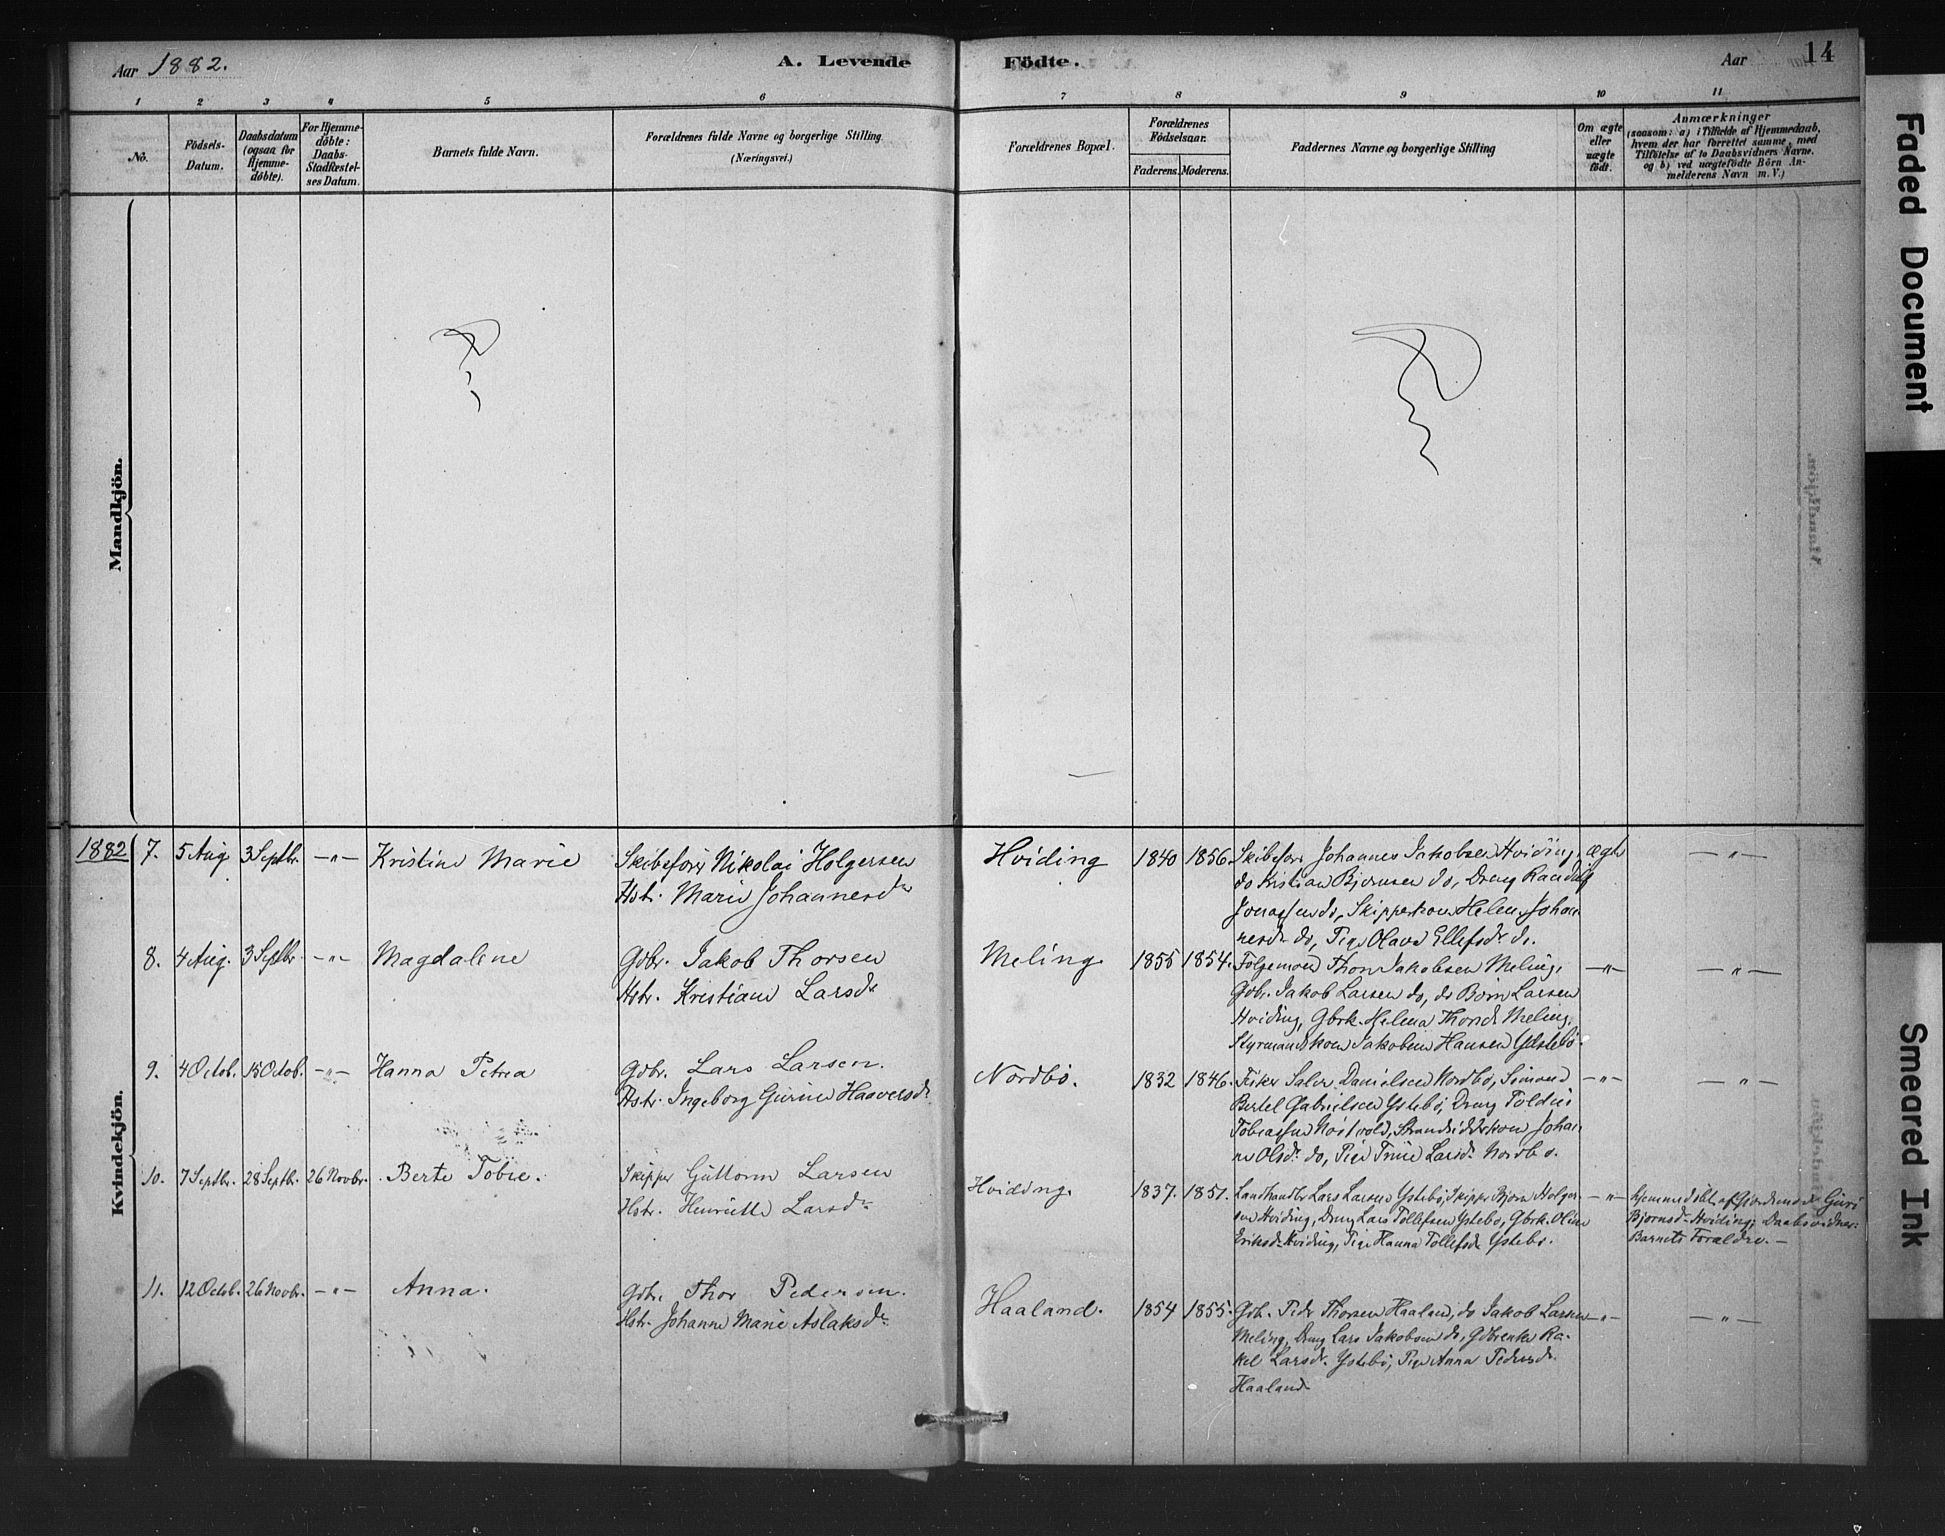 Aar 1882.
A. Levende
Födte.
Aar
14
1 2 3 4 5 6 7 8 9 10 11
No.
Födsels-
Datum.
Daabsdatum
(ogsaa for
Hjemme-
döbte).
For Hjemme-
döbte:
Daabs-
Stadfæstel-
ses Datum.
Barnets fulde Navn.
Forældrenes fulde Navne og borgerlige Stilling.
(Næringsvei.)
Forældrenes Bopæl.
Forældrenes
Födselsaar.
Faderens. Moderens.
Faddernes Navne og borgerlige Stilling
Om ægte
eller
uægte
födt.
Anmærkninger
(saasom: a) i Tilfælde af Hjemmedaab,
hvem der har forrettet samme, med
Tilföielse af to Daabsvidners Navne,
og b) ved uægtefödte Börn An-
melderens Navn m. V.)
Mandkjön.
Kvindekjön.
1882
7. 5 Aug 3 Septbr. -"- Kristine Marie
Skibsfører Nikolai Holgersen
Hstr. Marie Johannesdr
Hviding 1840 1856.
Skibsfører Johannes Jakobsen Hviding,
do Kristian Bjørnsen do, Dreng Randulf
Jonassen do, Skipperkone Helene Johan-
nesdr do, Pige Olava Ellefsdr do.
ægte
-"-
8. 4 Aug. 3 Septbr. -"- Magdalene
Gdbr. Jakob Thorsen
Hstr. Kristiane Larsdr
Meling 1855 1854.
Thor Jakobsen Meling,
Gdbr. Jakob Larsen do, do Børn Larsen
Hviding, Gbrk. Helena Thorsdr Meling,
Styrmandskone Jakobine Hansen Ystebø.
-"- -"-
9. 4 Octob. 15 Octob. -"- Hanna Petrea
Gdbr. Lars Larsen.
Hstr. Ingeborg Gurine Haaversdr
Nordbø. 1832 1846.
Fisker Salve Danielsen Nordbø,
Bertel Gabrielsen Ystebø, Dreng
Tobiassen Johan-
ne Olsdr do, Pige Trine Larsdr Nordbø.
-"- -"-
10. 7 Septbr. 28 Septbr. 26 Novbr. Berte Tobie.
Skipper Guttorm Larsen
Hstr. Henriette Larsdr
Hviding 1837. 1851.
Landhandler Lars Larsen Ystebø, Skipper Bjørn Holger-
sen Hviding, Dreng Lars Tollefsen Ystebø, Gbrk. Oline
Eriksdr Hviding, Pige Hanna Tollefsdr Ystebø.
-"-
hjemmedøbt af Gjordemoder Guri
Bjørnsdr Hviding; Daabsvidner:
Barnets Forældre. -
11. 12 Octob. 26 Novbr. -"- Anna.
Gdbr. Thor Pedersen.
Hstr. Johanne Marie Aslaksdr
Haaland. 1854 1855.
Gdb. Peder Thorsen Haaland, do Jakob Larsen
Meling, Dreng Lars Jakobsen do, Gdbrenke Ra-
kel Larsdr. Ystebø, Pige Anna Pedersdr.
Haaland
-"- -"-
Faded Document
Smeared Ink